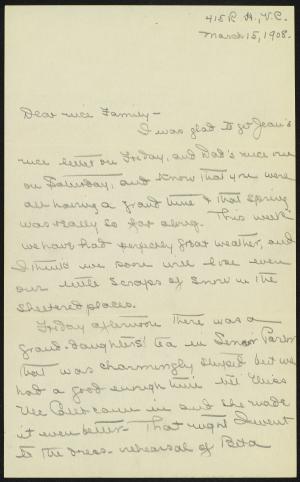 415 R. H., V.C.
March 15, 1908.
Dear nice Family—
I was glad to get Jean's
nice letter on Friday, and Dad's nice one
on Saturday, and know that you were
all having a grand time & that Spring
was really so far along. This week
we have had perfectly great weather, and
I think we soon will lose even
our little scraps of snow in the
sheltered places.
Friday afternoon there was a
grand-daughters' tea in Senior Parlor
That was charmingly stupid but we
had a good enough time till Miss
came in and she made
it even better— That night I went
to the dress-rehearsal of Beta